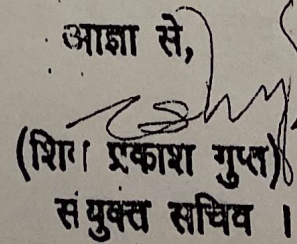 आज्ञा से,
(शिव प्रकाश गुप्त)
संयुक्त सचिव ।